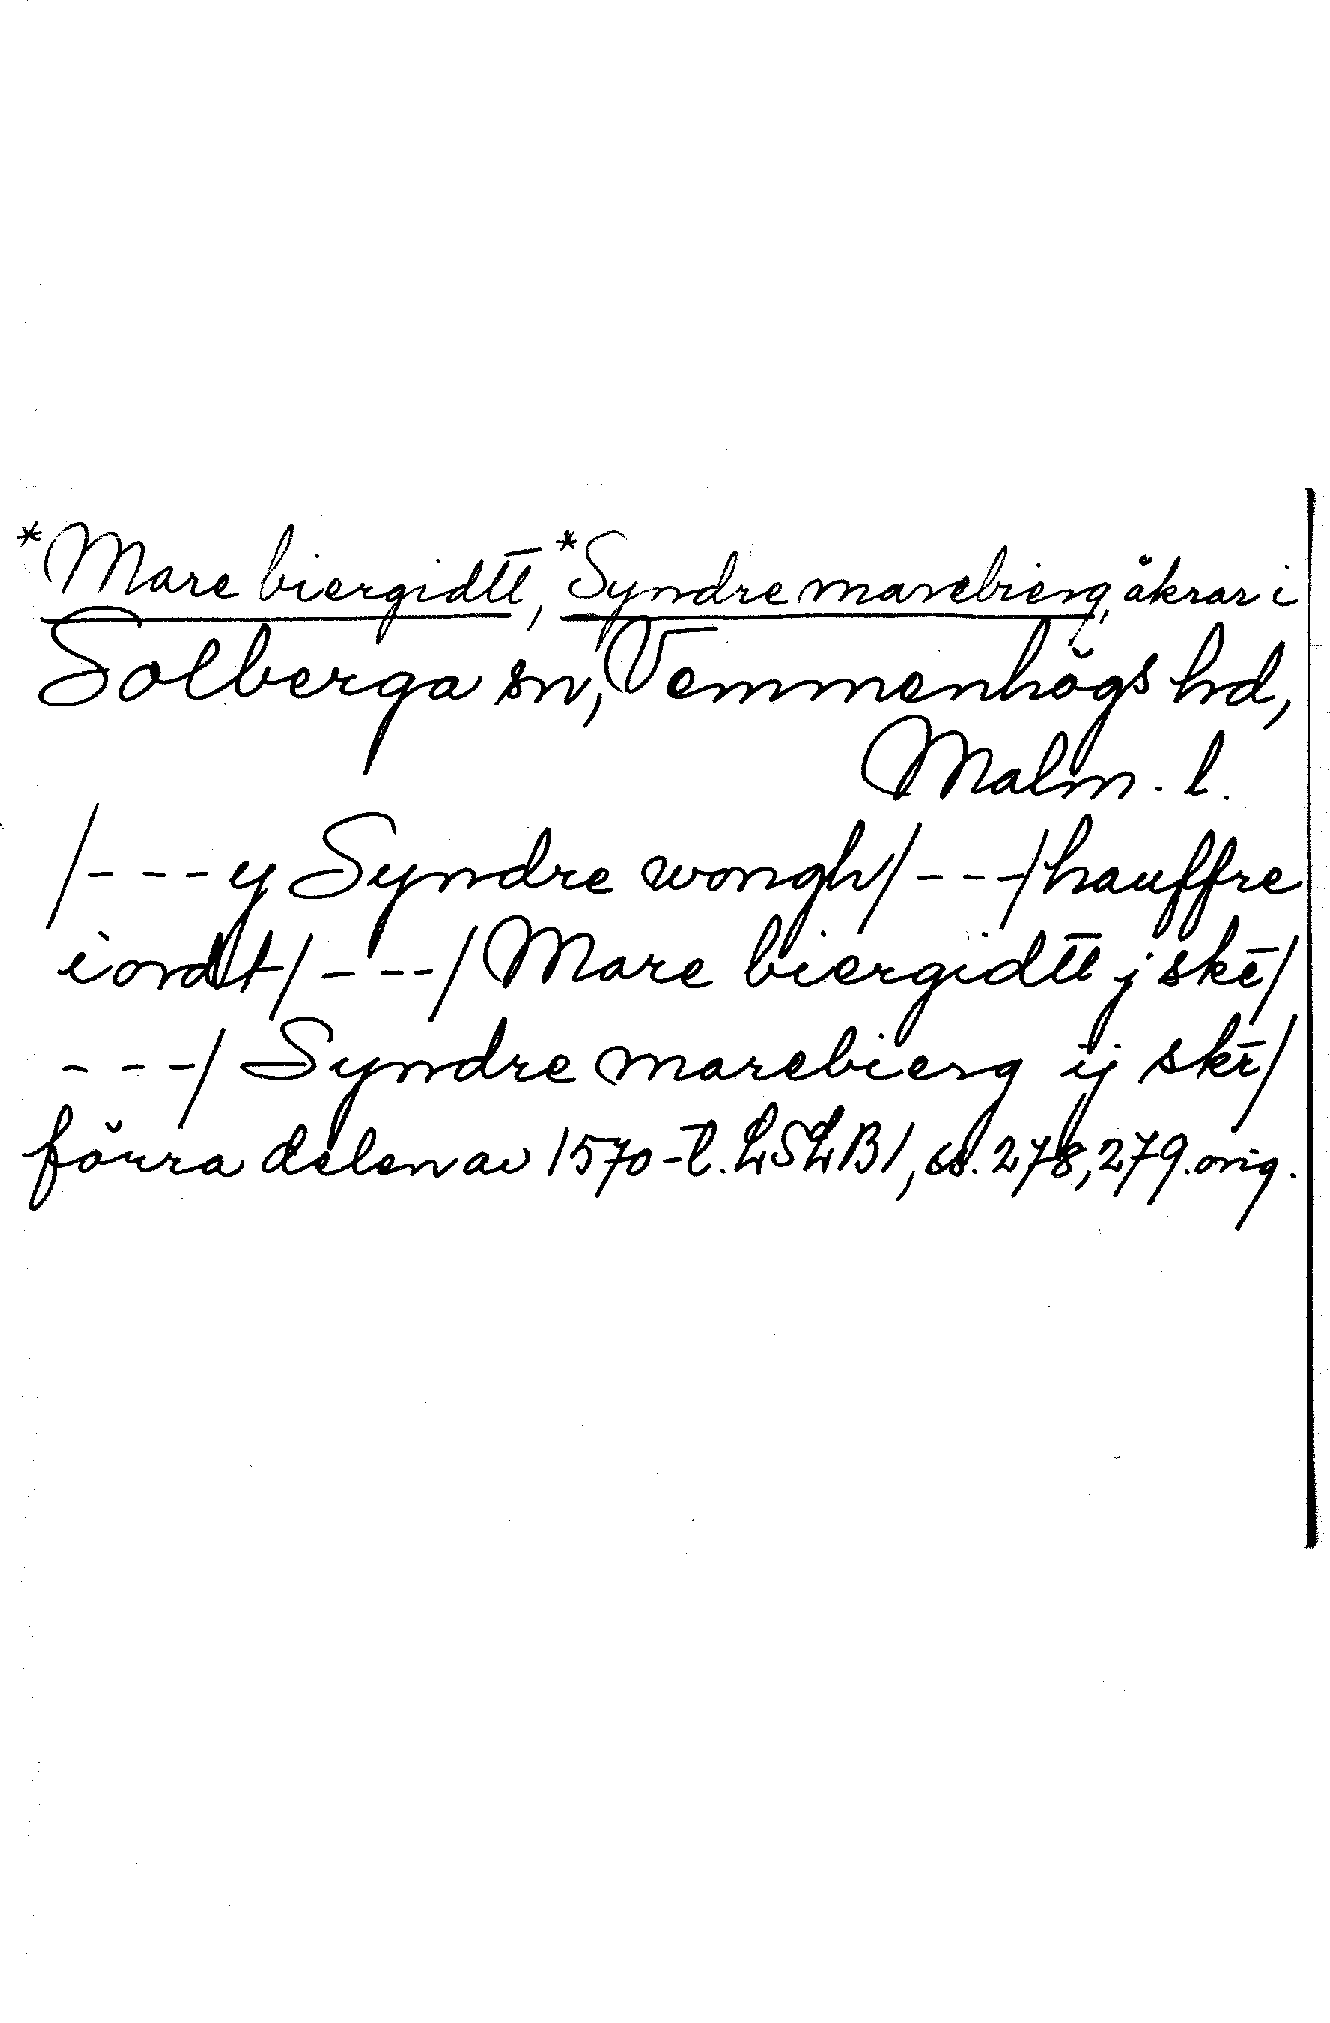 *Mare biergidtt, *Syndre marebierg, åkrar i
Solberga sn, Vemmenhögs hd,
Malm. l.
/---y Syndre wongh/---/hauffre
iordt/---/Mare biergidtt j skē/
---/Syndre marebierg ij skē/
förra delen av 1570-t. LSLB1, ss. 278, 279. orig.